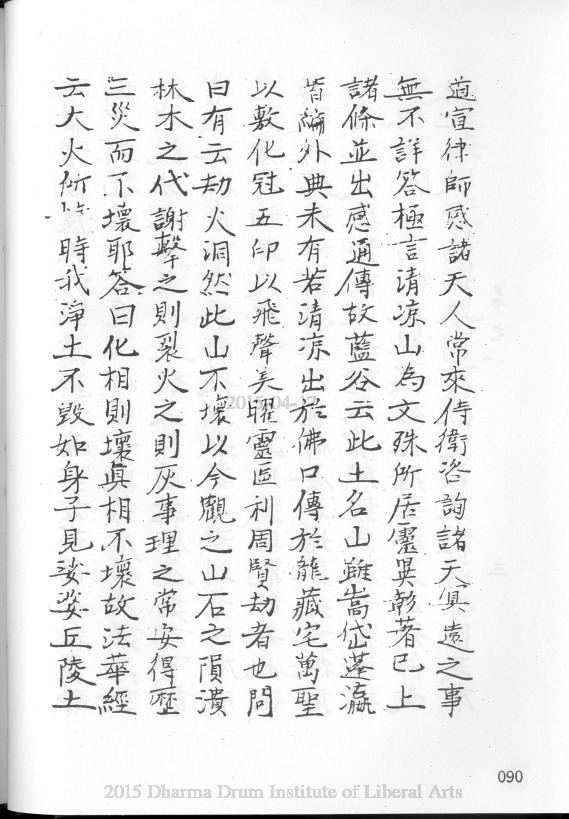 道宣律師感諸天人常來侍衛咨詢諸天冥遠之事
無不詳答極言清凉山為文殊所居靈異彰著已上
諸條並出感通傳故藍谷云此土名山雖嵩岱蓬瀛
皆編外典未有若清凉出於佛口傳於龍藏宅萬聖
以敷化冠五印以飛聲美曜靈區利周賢劫者也問
曰有云劫火洞然此山不壞以今觀之山石之隕潰
林木之代謝擊之則裂火之則灰事理之常安得歷
三災而不壞耶答曰化相則壞真相不壞故法華經
云大火所時我淨土不毀如身子見娑婆丘陵土
2015-04-
090
2015 Dharma Drum Institute of Liberal Arts